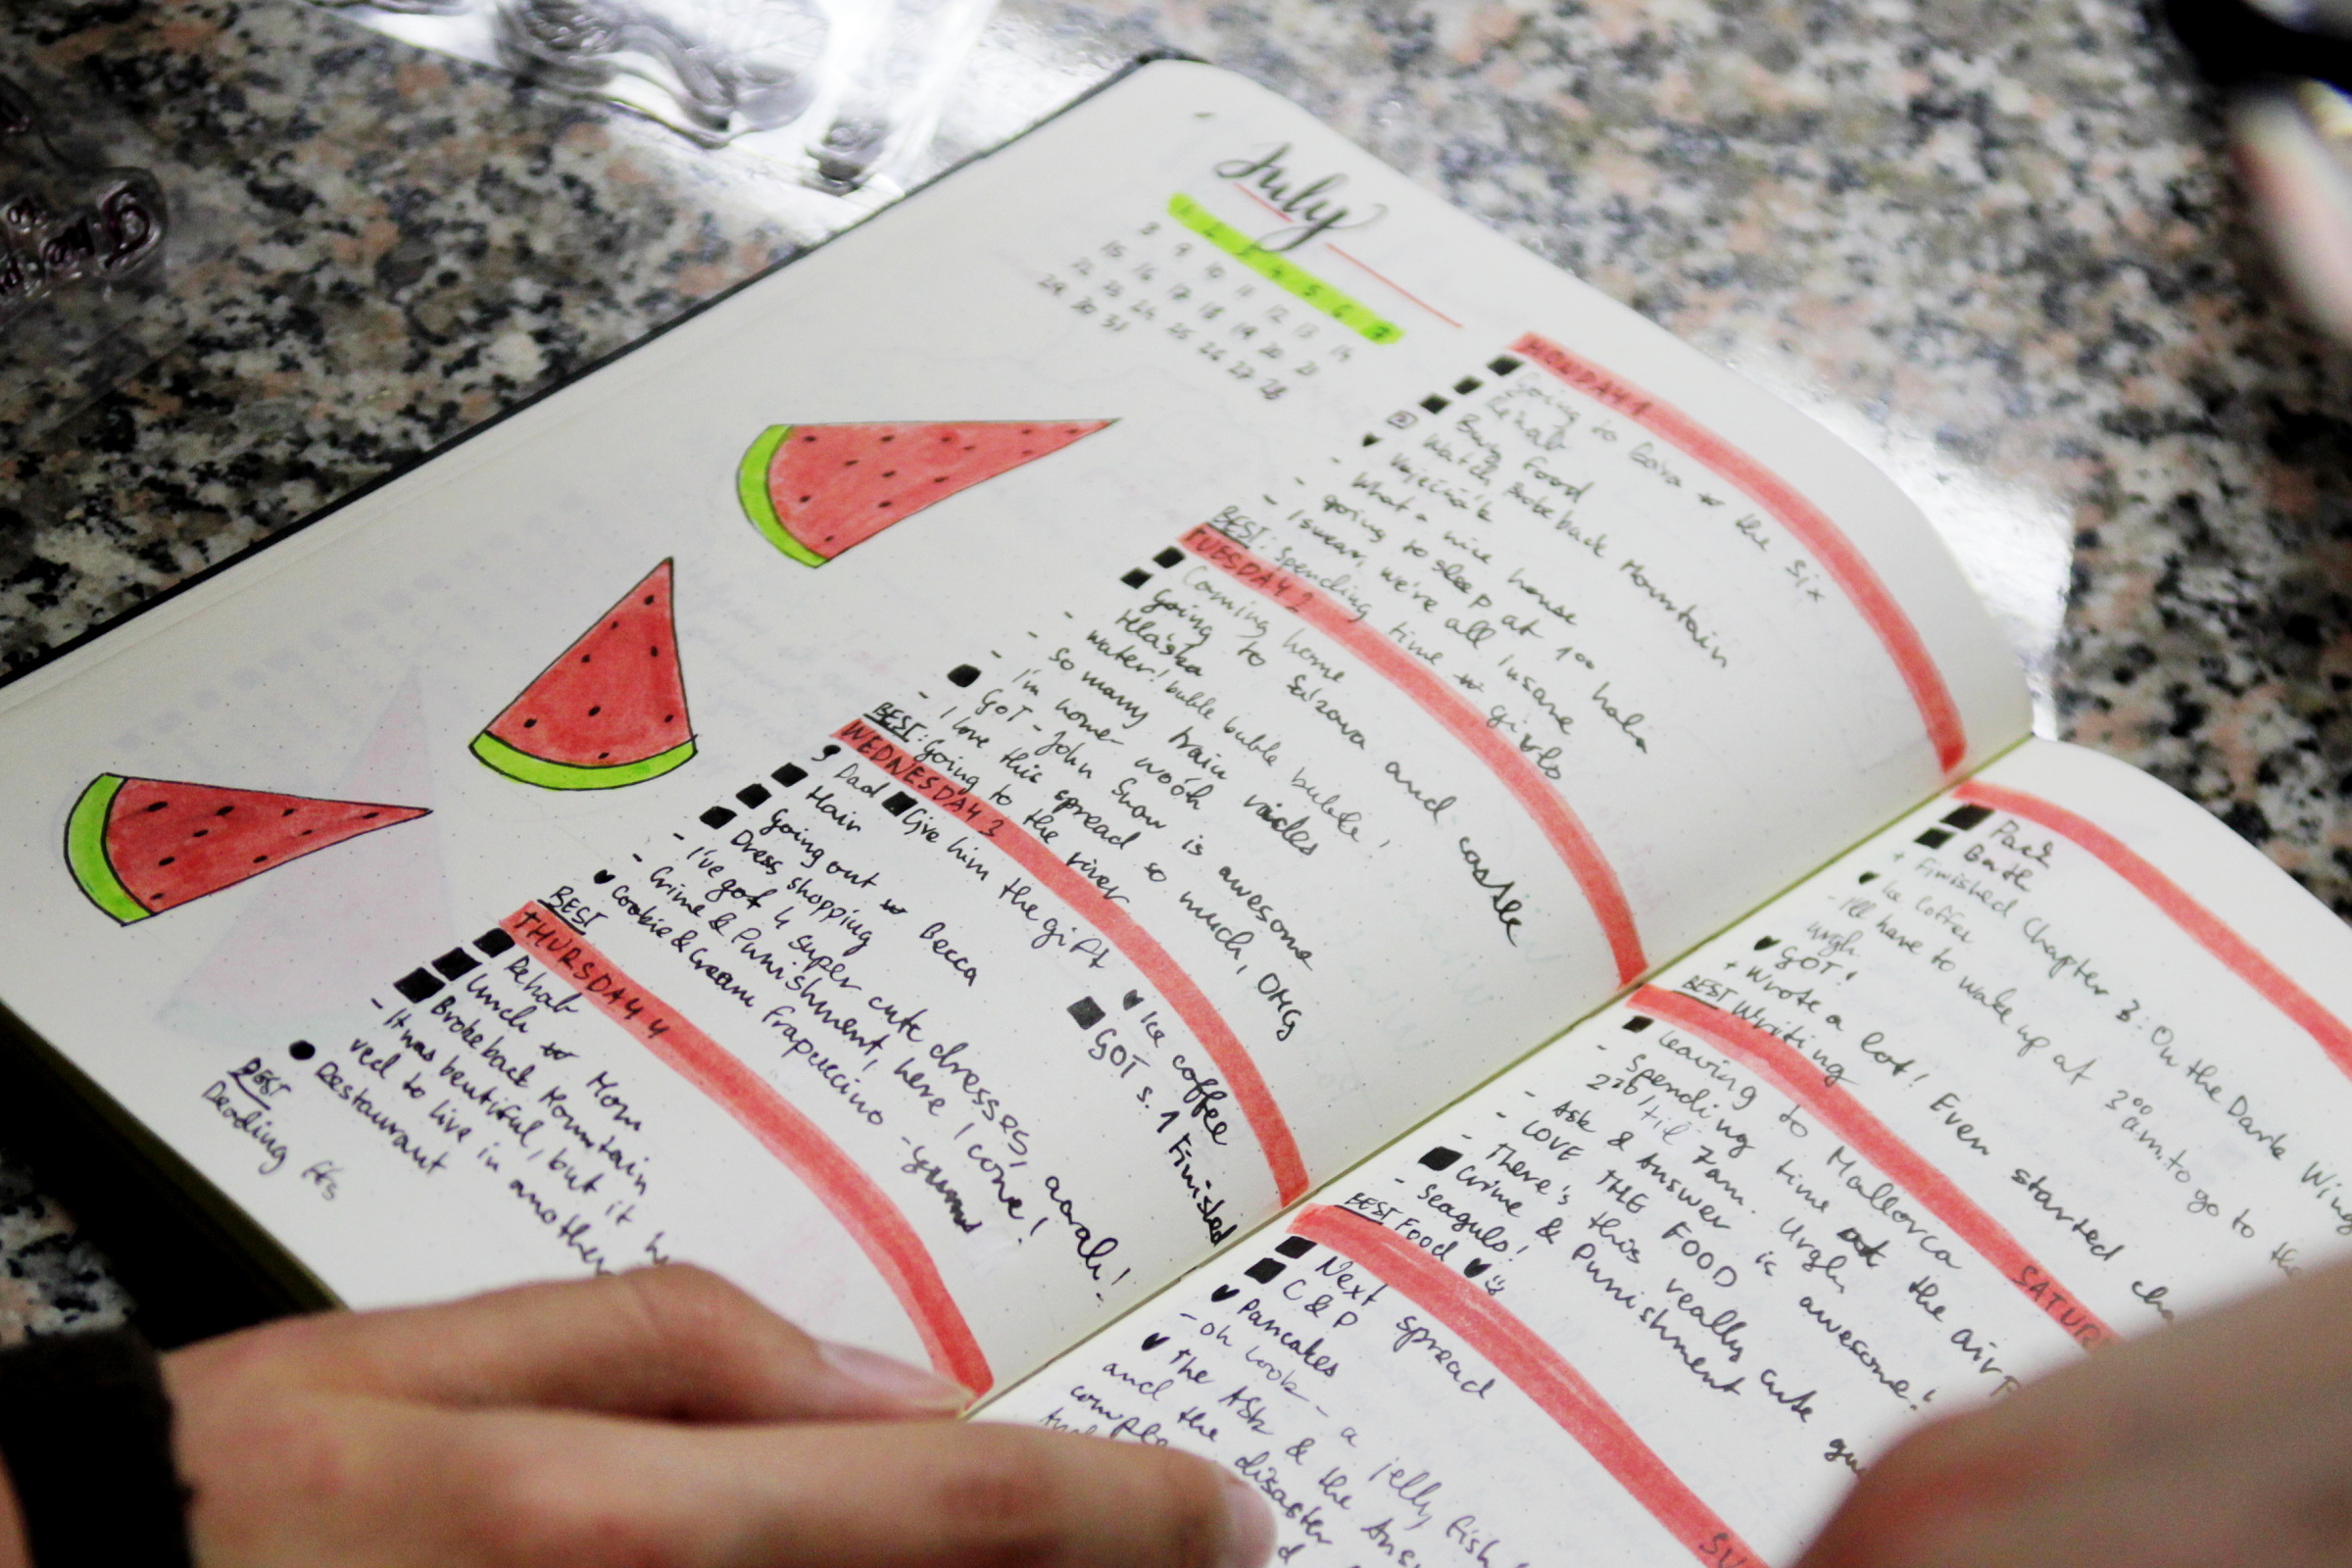 July
1 2 3 4 5 6 7
8 9 10 11 12 13 14
15 16 17 18 19 20 21
22 23 24 25 26 27 28
29 30 31
MONDAY 1
Going to the six
Rehab
Buy Food
Watch Brokeback Mountain
- What a nice house
- going to sleep at 1⁰⁰
- I swear, we're all insane
BEST: Spending time w girls
TUESDAY 2
Coming home
Going to Sázava and castle
Hláska
- water! buble buble buble!
- So many train
- I'm home woóh
GOT - John Snow is awesome
- I love this spread so much, OMG
BEST: Going to the river
WEDNESDAY 3
Dad Give him the gift
Hair
Going out w Becca
Dress shopping
- I've got 4 super cute dresses, aaah!
- Crime & Punishment, here I come!
♥ Cookie & Cream Frapuccino - yum
♥ Ice coffee
GOT s. 1 Finished
BEST
THURSDAY 4
Rehab
Lunch w Mom
Brokeback Mountain
- It was beutiful, but it
to live in another
Restaurant
BEST
Reading ffs
Pack
Bath
+ Finished Chapter 3: On the Dark Wing
♥ Ice Coffee
- I'll have to wake up at 3⁰⁰ am. to go to the
urgh
♥ GOT!
+ Wrote a lot! Even started cha
BEST Writing
SATUR
Leaving to Mallorca
- Spending time at the airp
2³⁰ til 7am. Urgh
- Ask & Answer is awesome!
- LOVE THE FOOD
- There's this really cute gu
Crime & Punishment
- Seaguls!
BEST Food ♥
SU
Next spread
C & P
♥ Pancakes
- Oh look - a jelly fish
♥ The Ask & the Ans
and the disaster
comple